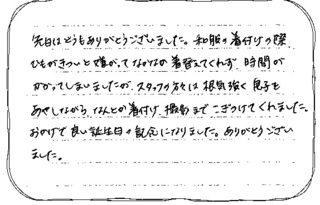 先日はどうもありがとうございました。和服の着付けの際
ひもがきついと嫌がってなかなか着替えてくれず、時間が
かかってしまいましたが、スタッフの方々は根気強く息子を
あやしながら、なんとか着付け、撮影までこぎつけてくれました。
おかげで良い誕生日の記念になりました。ありがとうござい
ました。